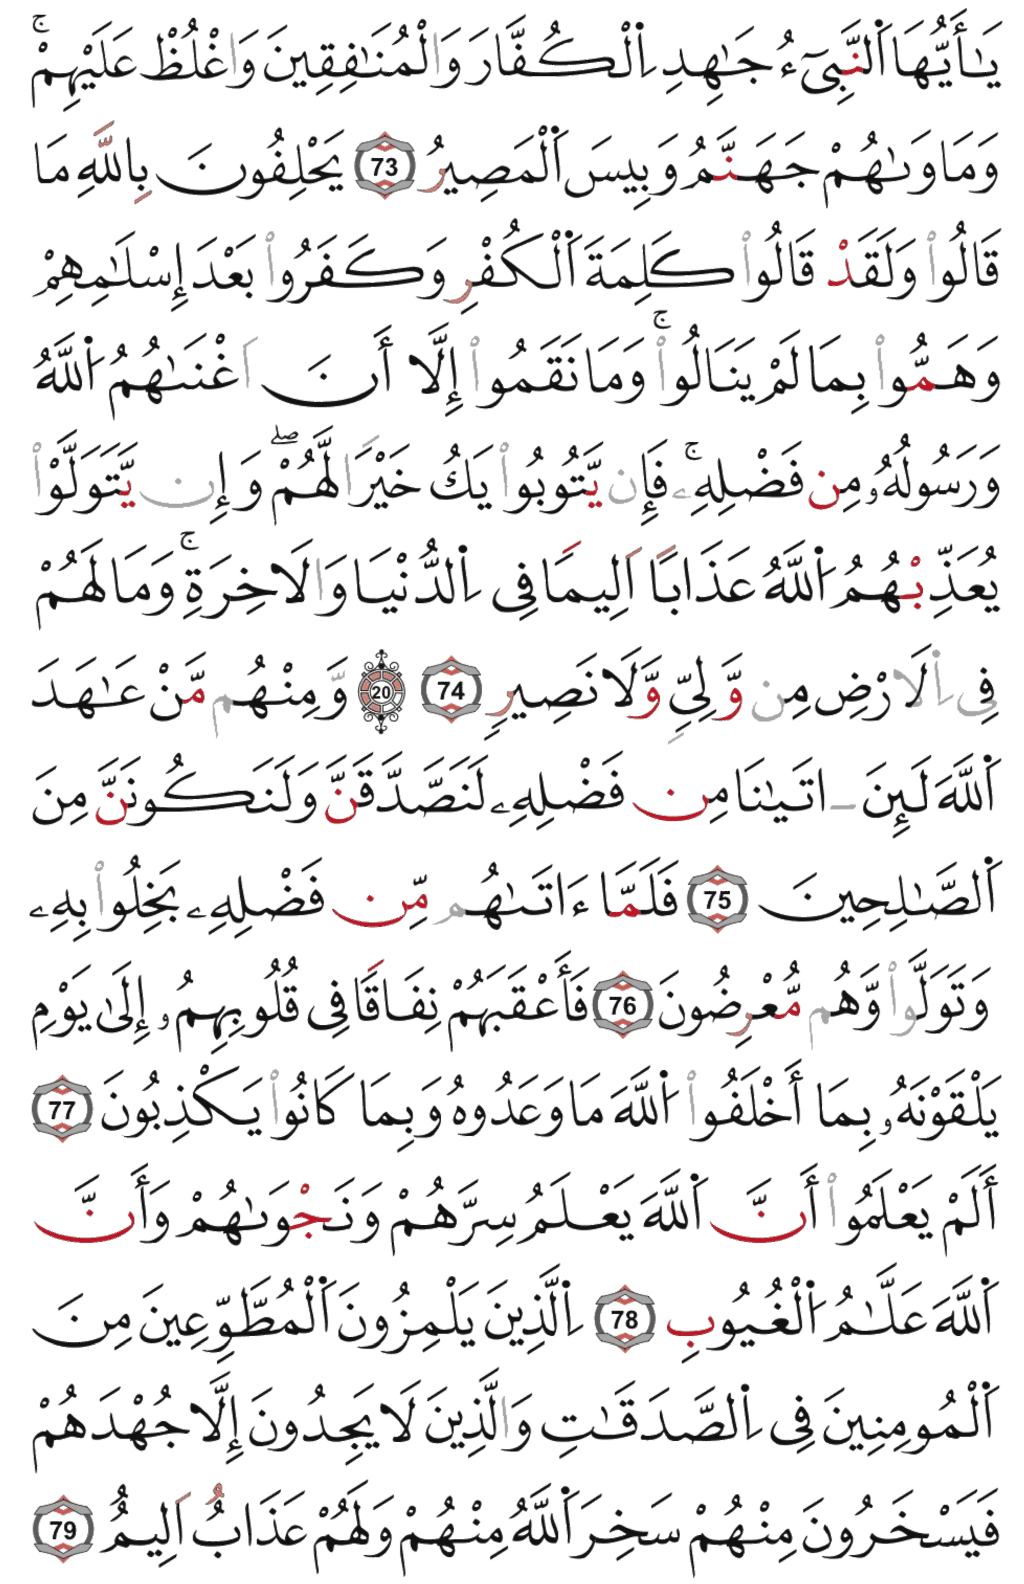 يَٰأَيُّهَا اَ۬لنَّبِيٓءُ جَٰهِدِ اِ۬لْكُفَّارَ وَالْمُنَٰفِقِينَ وَاغْلُظْ عَلَيْهِمْۚ
وَمَاوَىٰهُمْ جَهَنَّمُ وَبِيسَ اَ۬لْمَصِيرُ 73 يَحْلِفُونَ بِاللَّهِ مَا
قَالُواْ وَلَقَدْ قَالُواْ كَلِمَةَ اَ۬لْكُفْرِ وَكَفَرُواْ بَعْدَ إِسْلَٰمِهِمْ
وَهَمُّواْ بِمَا لَمْ يَنَالُواْۚ وَمَا نَقَمُواْ إِلَّا أَنَ اَغْنَىٰهُمُ اُ۬للَّهُ
وَرَسُولُهُۥ مِن فَضْلِهِۦۚ فَإِن يَّتُوبُواْ يَكُ خَيْراً لَّهُمْۖ وَإِن يَّتَوَلَّوْاْ
يُعَذِّبْهُمُ اُ۬للَّهُ عَذَاباً اَلِيماً فِي اِ۬لدُّنْيَا وَالَاخِرَةِۚ وَمَا لَهُمْ
فِي اِ۬لَارْضِ مِن وَّلِيّٖ وَّلَا نَصِيرٖ 74 20 وَمِنْهُم مَّنْ عَٰهَدَ
اَ۬للَّهَ لَئِنَ اتَيٰنَا مِن فَضْلِهِۦ لَنَصَّدَّقَنَّ وَلَنَكُونَنَّ مِنَ
اَ۬لصَّٰلِحِينَ 75 فَلَمَّا ءَاتَىٰهُم مِّن فَضْلِهِۦ بَخِلُواْ بِهِۦ
وَتَوَلَّواْ وَّهُم مُّعْرِضُونَ 76 فَأَعْقَبَهُمْ نِفَاقاً فِي قُلُوبِهِمُۥ إِلَىٰ يَوْمِ
يَلْقَوْنَهُۥ بِمَا أَخْلَفُواْ اُ۬للَّهَ مَا وَعَدُوهُ وَبِمَا كَانُواْ يَكْذِبُونَ 77
أَلَمْ يَعْلَمُواْ أَنَّ اَ۬للَّهَ يَعْلَمُ سِرَّهُمْ وَنَجْوَىٰهُمْ وَأَنَّ
اَ۬للَّهَ عَلَّٰمُ اُ۬لْغُيُوبِ 78 اِ۬لَّذِينَ يَلْمِزُونَ اَ۬لْمُطَّوِّعِينَ مِنَ
اَ۬لْمُومِنِينَ فِي اِ۬لصَّدَقَٰتِ وَالَّذِينَ لَا يَجِدُونَ إِلَّا جُهْدَهُمْ
فَيَسْخَرُونَ مِنْهُمْ سَخِرَ اَ۬للَّهُ مِنْهُمْ وَلَهُمْ عَذَابٌ اَلِيمٌ 79